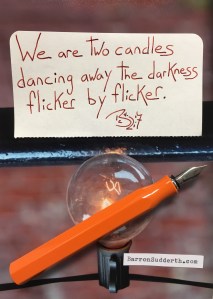 We are two candles
dancing away the darkness
flicker by flicker.
BarronSudderth.com